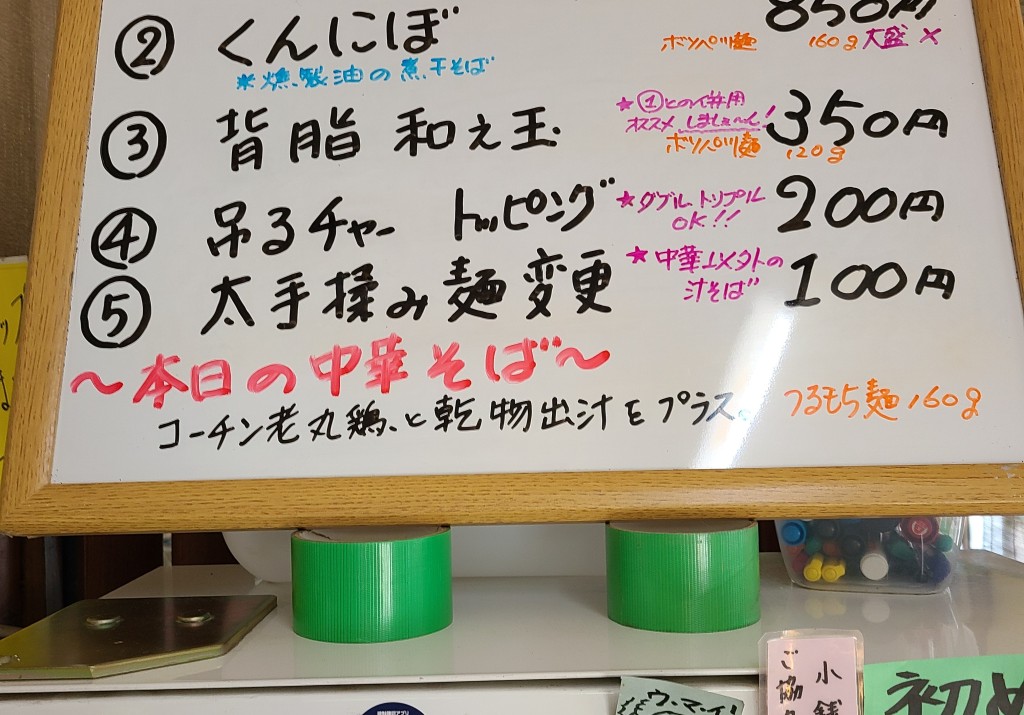 ② くんにぼ 850円
※燻製油の煮干そば
ボソパツ麺 160g 大盛 ×
③ 背脂 和え玉 350円
★①との併用
オススメしましぇ〜ん!
ボソパツ麺 120g
④ 吊るチャー トッピング 200円
★ダブル、トリプル
OK!!
⑤ 太手揉み麺変更 100円
★中華以外の
汁そば
〜本日の中華そば〜
コーチン老丸鶏、と乾物出汁をプラス。 つるもち麺 160g
小銭
ご協
ウ・マ・イ!
初め